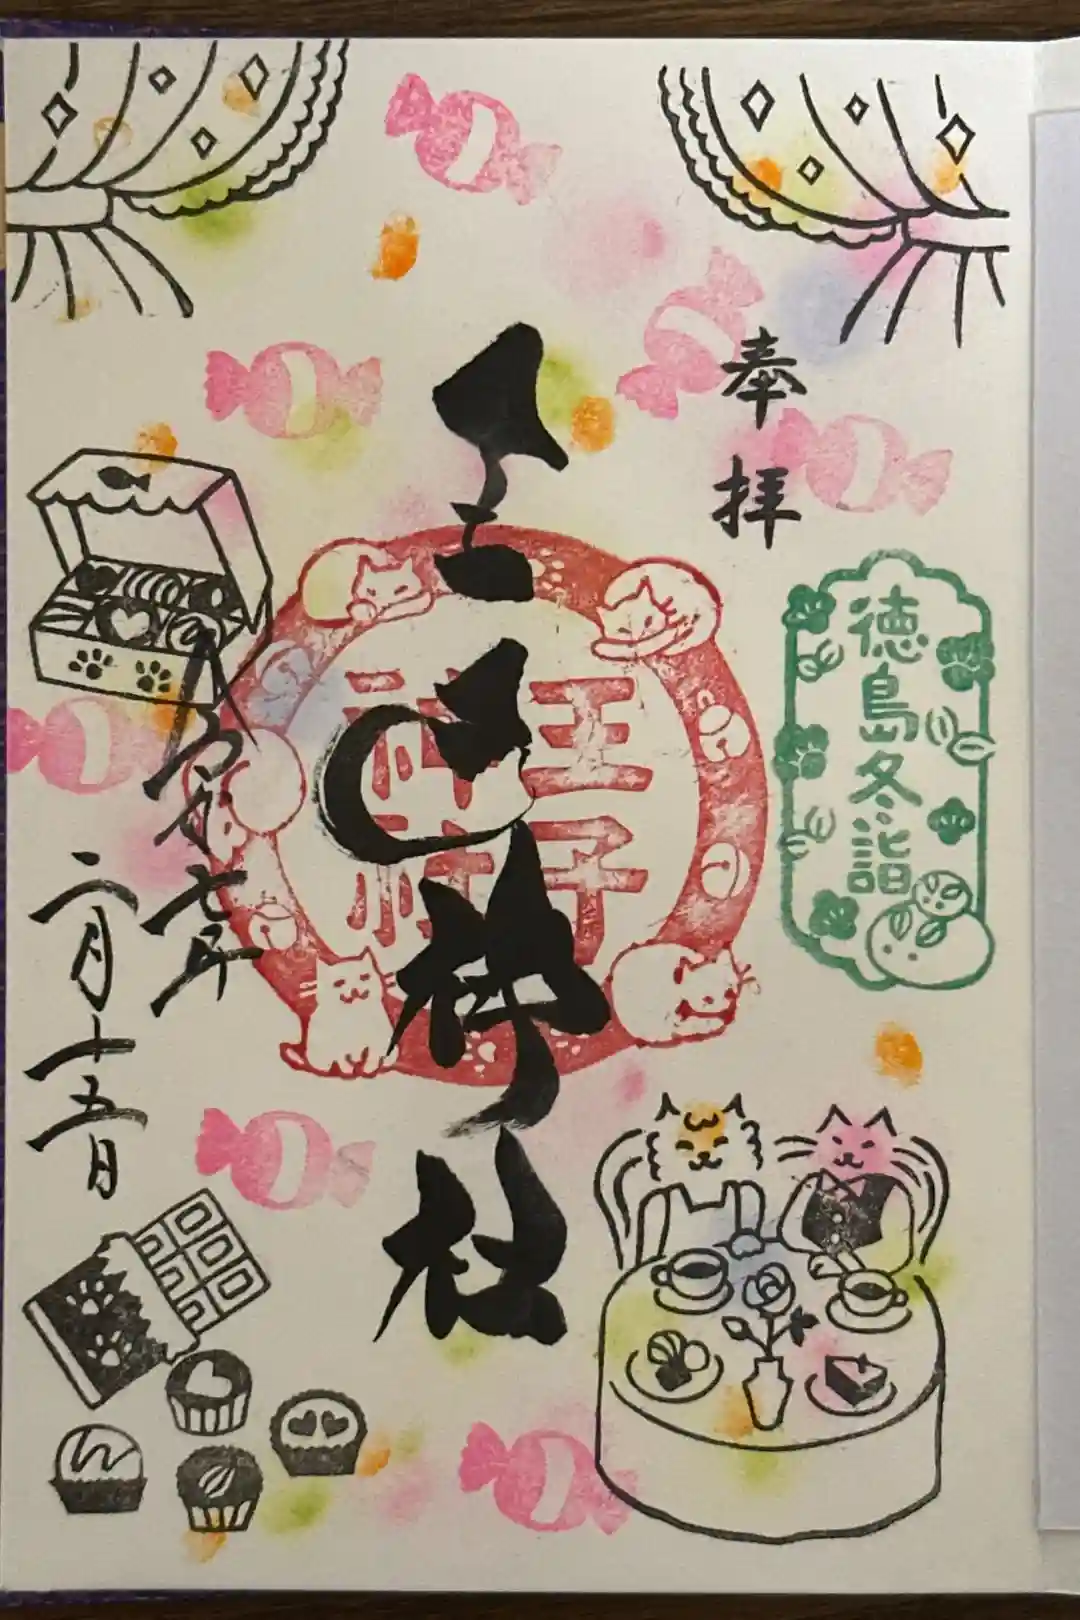 奉拝
徳島冬詣
王子神社
王子神社
令和七年
二月十五日